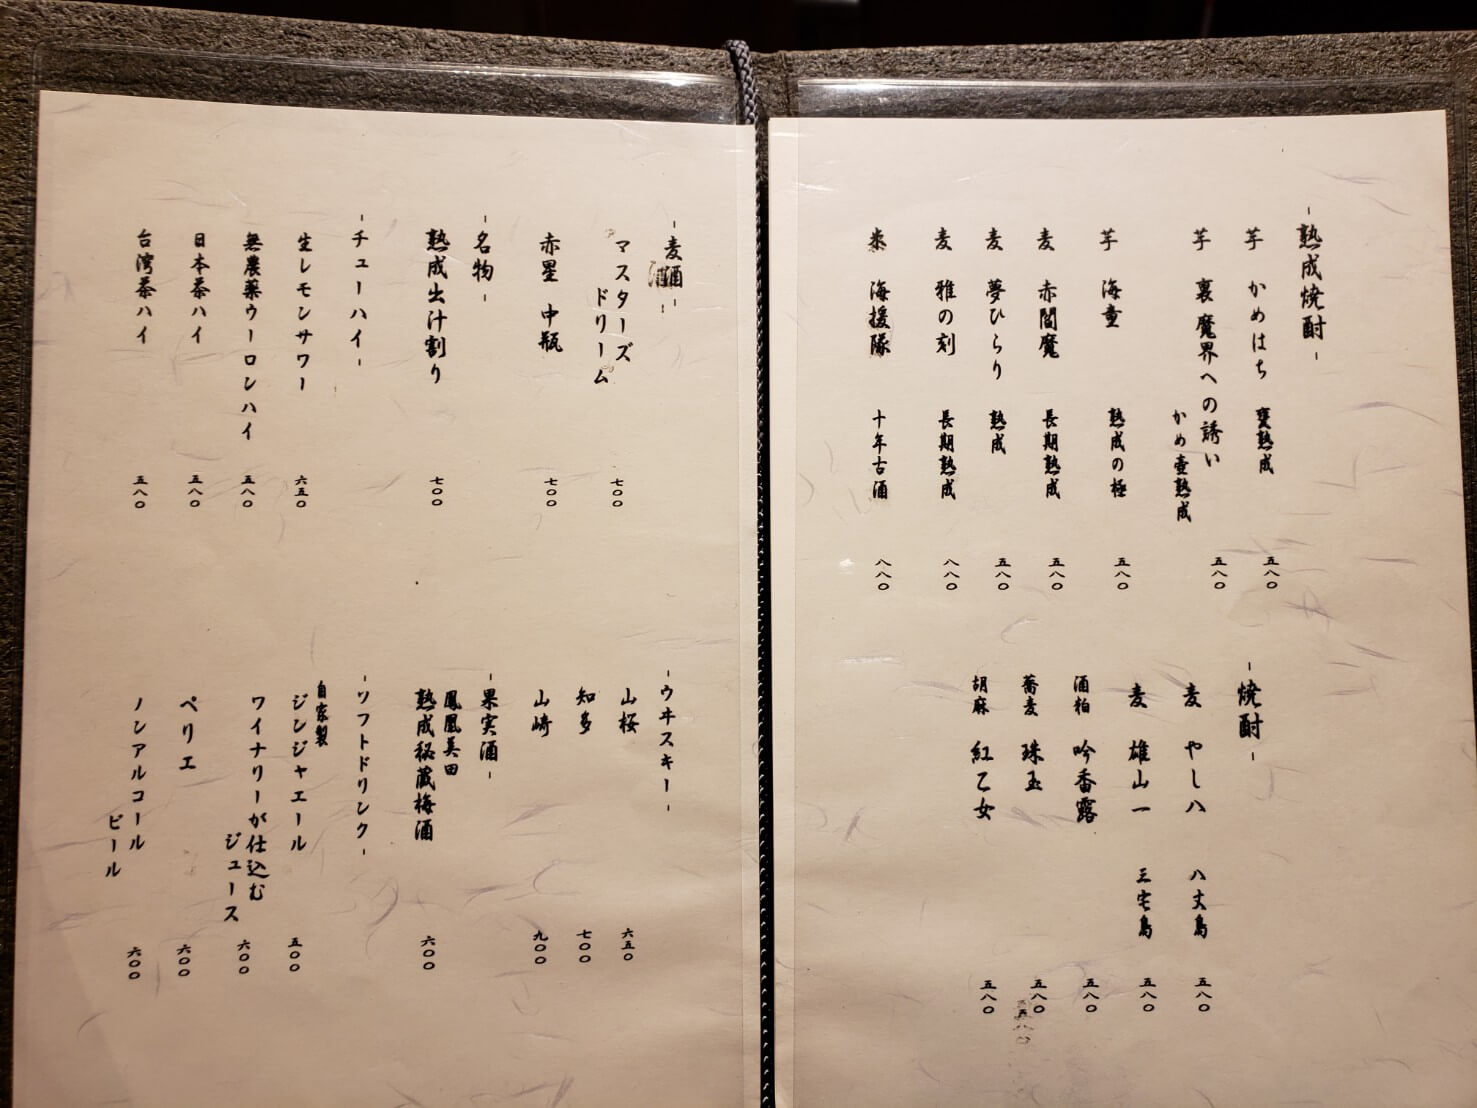 -熟成焼酎-
芋 かめはち 甕熟成 五八〇
芋 裏 魔界への誘い かめ壺熟成 五八〇
芋 海童 熟成の極 五八〇
麦 赤閻魔 長期熟成 五八〇
麦 夢ひらり 熟成 五八〇
麦 雅の刻 長期熟成 八八〇
米 海援隊 十年古酒 八八〇
-焼酎-
麦 やし八 八丈島 五八〇
麦 雄山一 三宅島 五八〇
酒粕 吟香露 五八〇
蕎麦 珠玉 五八〇
胡麻 紅乙女 五八〇
-麦酒-
マスターズドリーム 七〇〇
赤星 中瓶 七〇〇
-名物-
熟成出汁割り 七〇〇
-チューハイ-
生レモンサワー 六五〇
無農薬ウーロンハイ 五八〇
日本茶ハイ 五八〇
台湾茶ハイ 五八〇
-ウヰスキー-
山桜 六五〇
知多 七〇〇
山崎 九〇〇
-果実酒-
鳳凰美田
熟成秘蔵梅酒 六〇〇
-ソフトドリンク-
自家製
ジンジャエール 五〇〇
ワイナリーが仕込む
ジュース 六〇〇
ペリエ 六〇〇
ノンアルコール
ビール 六〇〇